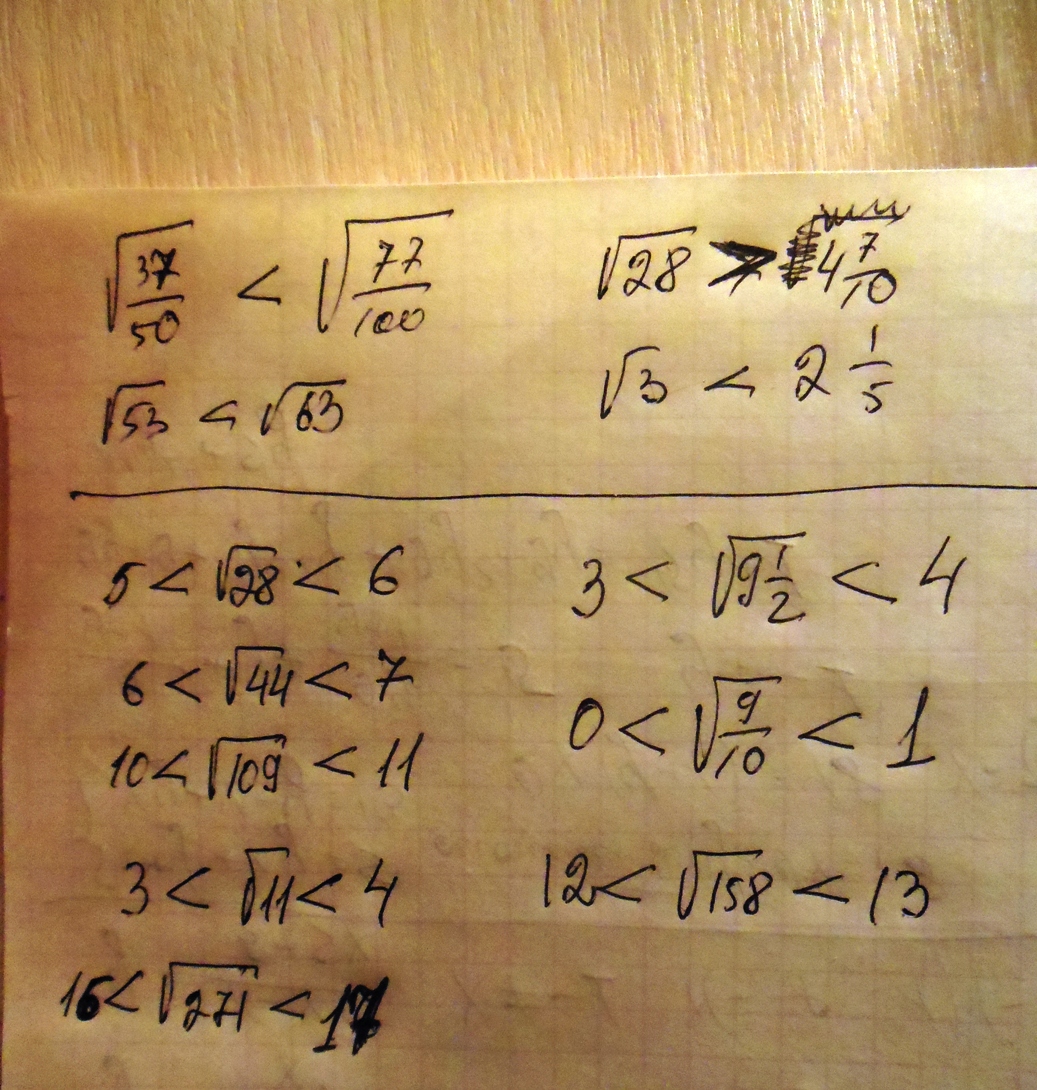 √(37/50) < √(77/100)    √28 > 4 7/10
√53 < √63    √3 < 2 1/5
5 < √28 < 6    3 < √(9 1/2) < 4
6 < √44 < 7    0 < √(9/10) < 1
10 < √109 < 11
3 < √11 < 4    12 < √158 < 13
16 < √271 < 17